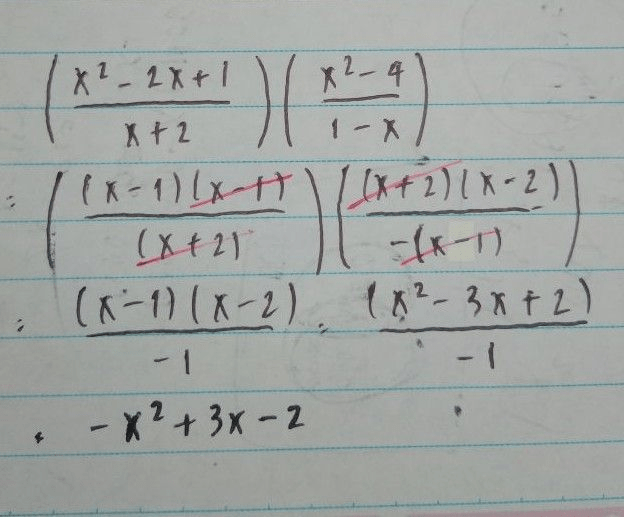 (x² - 2x + 1 / x + 2) (x² - 4 / 1 - x)
= ((x - 1)(x - 1) / (x + 2)) ((x + 2)(x - 2) / -(x - 1))
= (x - 1)(x - 2) / -1 = (x² - 3x + 2) / -1
= -x² + 3x - 2